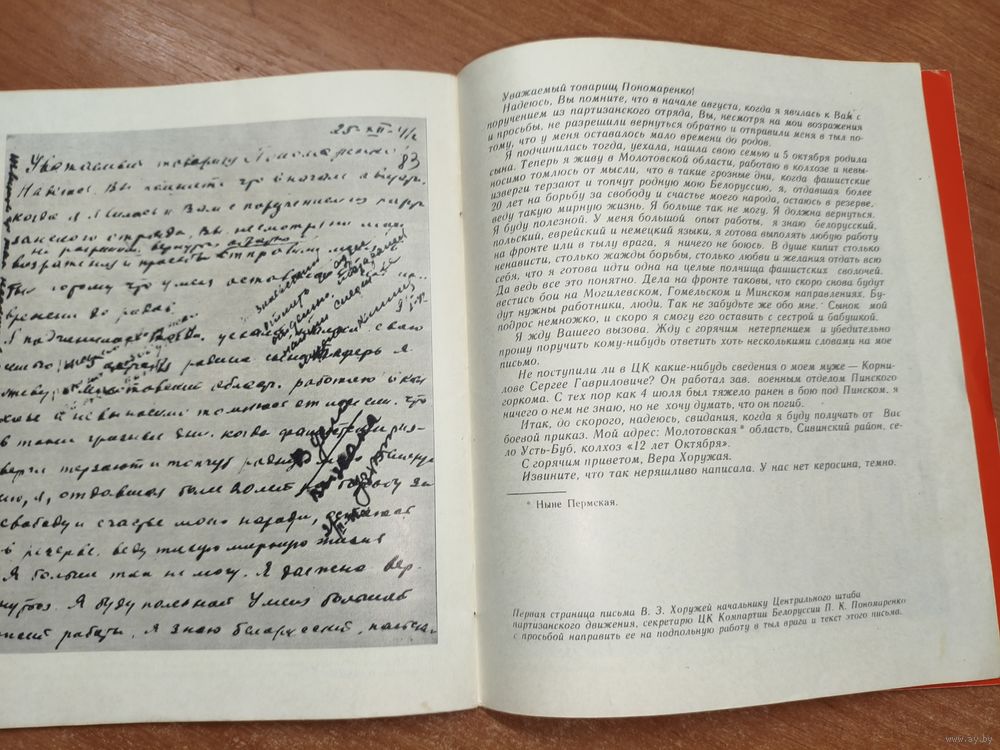 25-XII-41 г.
83
Уважаемый товарищ Пономаренко!
Надеюсь, Вы помните, что в начале август.
когда я явилась к Вам с поручением из парти-
занского отряда, Вы, несмотря на мои
возражения и просьбы отправили меня
тому что у меня оставалось
времени до родов.
Я подчинилась тогда, уехала свою
родила Теперь я
живу в Молотовской области, работаю в кол-
хозе и невыносимо томлюсь от мысли, что
в такие грозные дни, когда фашистские из-
верги терзают и топчут родную Белорус-
сию, я, отдавшая более 20 лет на борьбу за
свободу и счастье моего народа, остаюсь
в резерве, веду такую мирную жизнь
Я больше так не могу. Я должна вер-
нуться. Я буду полезной. У меня большой
опыт работы, я знаю белорусский, польск-
Уважаемый товарищ Пономаренко!
Надеюсь, Вы помните, что в начале августа, когда я явилась к Вам с
поручением из партизанского отряда, Вы, несмотря на мои возражения
и просьбы, не разрешили вернуться обратно и отправили меня в тыл по-
тому, что у меня оставалось мало времени до родов.
Я подчинилась тогда, уехала, нашла свою семью и 5 октября родила
сына. Теперь я живу в Молотовской области, работаю в колхозе и невы-
носимо томлюсь от мысли, что в такие грозные дни, когда фашистские
изверги терзают и топчут родную мою Белоруссию, я, отдавшая более
20 лет на борьбу за свободу и счастье моего народа, остаюсь в резерве,
веду такую мирную жизнь. Я больше так не могу. Я должна вернуться.
Я буду полезной. У меня большой опыт работы, я знаю белорусский,
польский, еврейский и немецкий языки, я готова выполнять любую работу
на фронте или в тылу врага, я ничего не боюсь. В душе кипит столько
ненависти, столько жажды борьбы, столько любви и желания отдать всю
себя, что я готова идти одна на целые полчища фашистских сволочей.
Да ведь все это понятно. Дела на фронте таковы, что скоро снова будут
вестись бои на Могилевском, Гомельском и Минском направлениях. Бу-
дут нужны работники, люди. Так не забудьте же обо мне. Сынок мой
подрос немножко, и скоро я смогу его оставить с сестрой и бабушкой.
Я жду Вашего вызова. Жду с горячим нетерпением и убедительно
прошу поручить кому-нибудь ответить хоть несколькими словами на мое
письмо.
Не поступили ли в ЦК какие-нибудь сведения о моем муже — Корни-
лове Сергее Гавриловиче? Он работал зав. военным отделом Пинского
горкома. С тех пор как 4 июля был тяжело ранен в бою под Пинском, я
ничего о нем не знаю, но не хочу думать, что он погиб.
Итак, до скорого, надеюсь, свидания, когда я буду получать от Вас
боевой приказ. Мой адрес: Молотовская* область, Сивинский район, се-
ло Усть-Буб, колхоз «12 лет Октября».
С горячим приветом, Вера Хоружая.
Извините, что так неряшливо написала. У нас нет керосина, темно.
* Ныне Пермская.
Первая страница письма В. З. Хоружей начальнику Центрального штаба
партизанского движения, секретарю ЦК Компартии Белоруссии П. К. Пономаренко
с просьбой направить ее на подпольную работу в тыл врага и текст этого письма.
www.ay.by